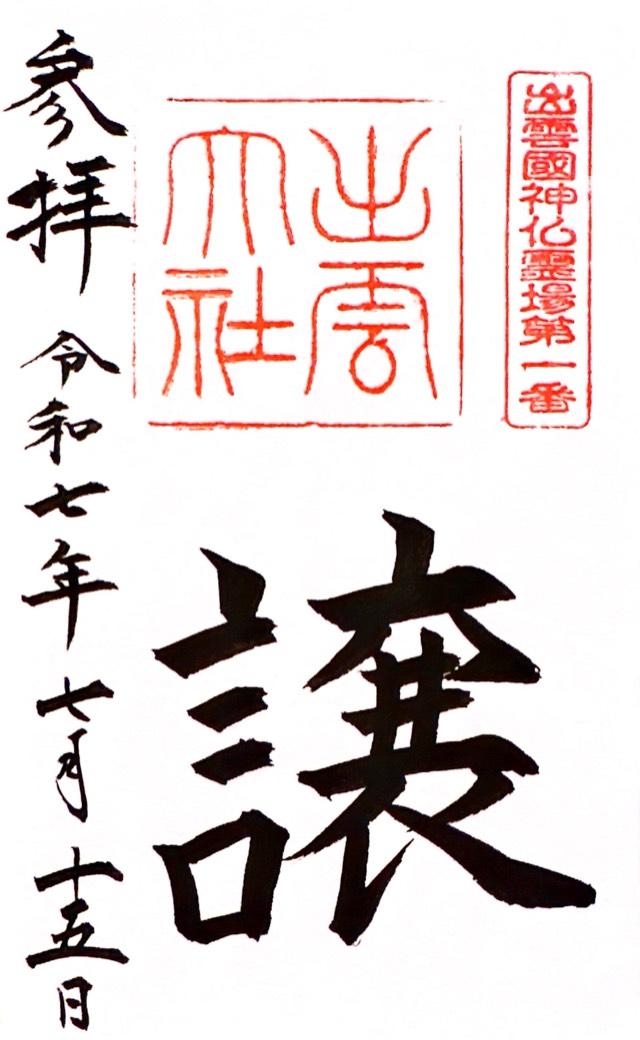 出雲國神仏霊場第一番
出雲
大社
譲
参拝 令和七年 七月 十五日